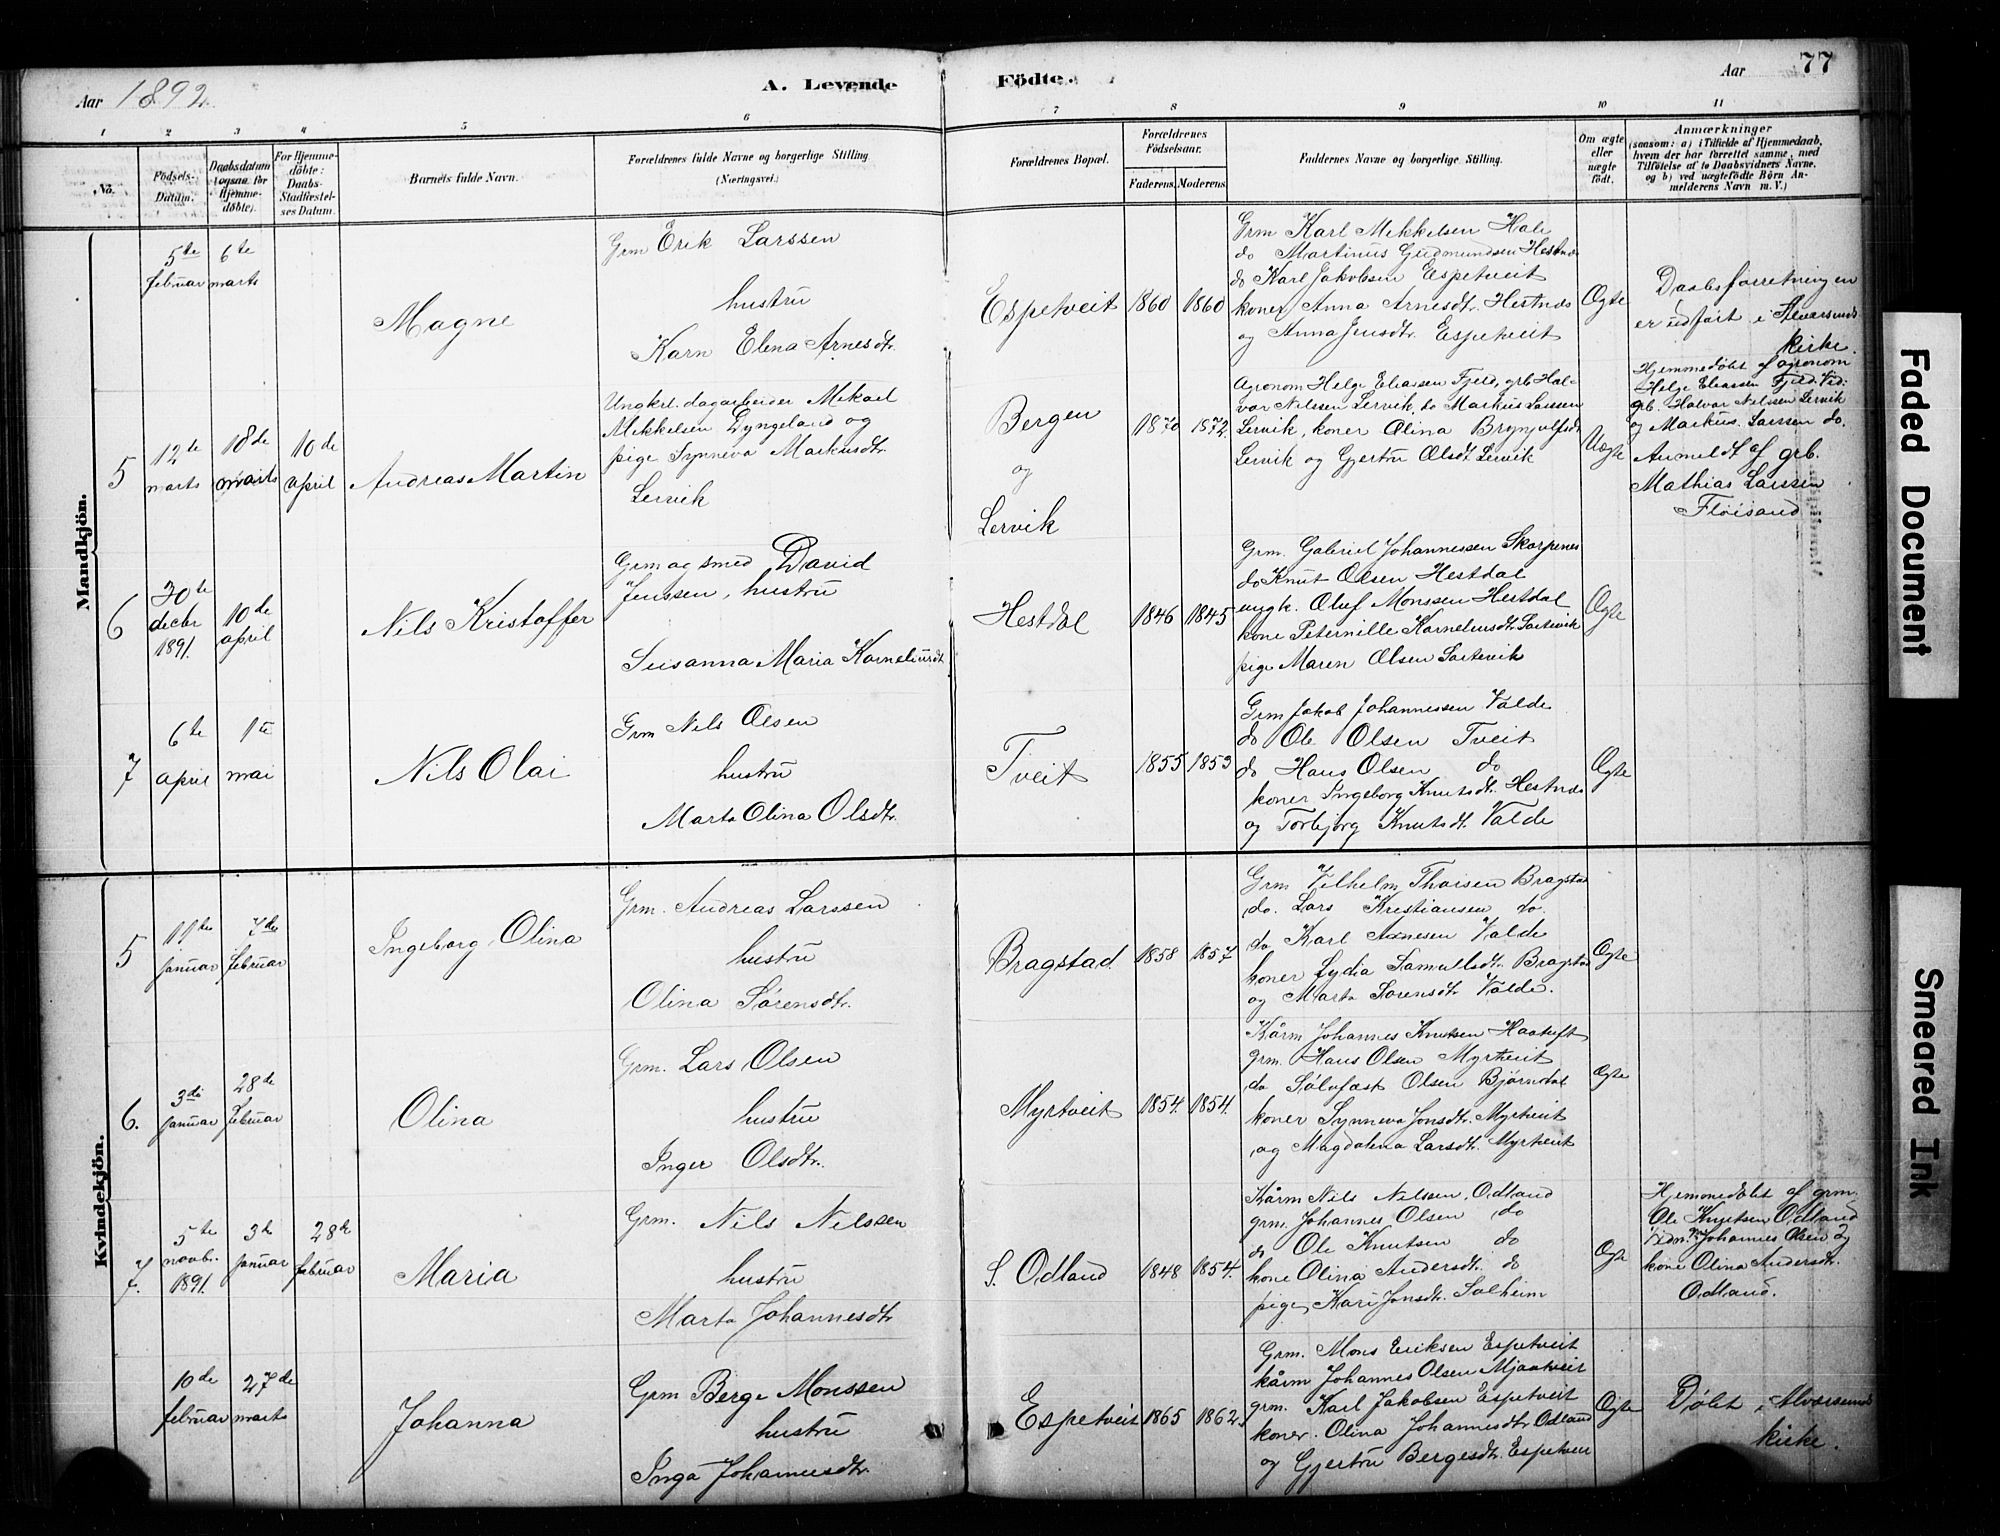 77
Aar 1892.
A. Levende Födte.
Aar
1 2 3 4 5 6 7 8 9 10 11
No.
Födsels-Datum.
Daabsdatum (ogsaa for Hjemme-döbte).
For Hjemme-döbte: Daabs-Stadfæstel-ses Datum.
Barnets fulde Navn.
Forældrenes fulde Navne og borgerlige Stilling (Næringsvei.)
Forældrenes Bopæl.
Forældrenes Födselsaar.
Faderens. Moderens.
Faddernes Navne og borgerlige Stilling.
Om ægte eller uægte født.
Anmærkninger
(saasom: a) i Tilfælde af Hjemmedaab,
hvem der har forrettet samme, med
Tilföielse af to Daabsvidners Navne,
og b) ved uægtefödte Börn An-
melderens Navn m. V.)
Mandkjön.
5te februar
6te marts
Magne
Grm Erik Larssen
hustru
Karn Elena Arnesdtr.
Espetveit
1860 1860
Grm Karl Mikkelsen Hole
do Martinus Gudmundsen Hestnes
do Karl Jakobsen Espetveit
koner Anna Arnesdtr. Hestnes
og Anna Jensdtr. Espetveit
Ægte
Daabsforretningen
er udført i Alversunds
kirke.
5
12te marts
18de marts
10de april
Andreas Martin
Ungkrl. dagarbeider Mikael
Mikkelsen Dyngeland og
pige Synneva Markusdtr.
Lervik
Bergen
og
Lervik
1870 1872
Agronom Helge Eliassen Fjeld, grb Hal-
vor Nilssen Lervik, do Markus Larssen
Lervik, koner Olina Brynjulfsdtr
Lervik og Gjertru Olsdt. Lervik
Uægte
Hjemmedøbt af agronom
Helge Eliassen Fjeld. Vid:
grb. Halvor Nilssen Lervik
og Markus Larssen do.
Anmeldt af grb.
Mathias Larssen
Floisand
6
30te decbr 1891.
10de april
Nils Kristoffer
Grm og smed David
Jenssen, hustru
Susanna Maria Korneliusdt.
Hestdal
1846 1845
Grm. Gabriel Johannessen Skarpenes
do Knut Olsen Hestdal
ungk. Oluf Monssen Hestdal
kone Peternille Korneliusdtr Sartevik
pige Maren Olsen Sartevik
Ægte
7
6te april
1te mai
Nils Olai
Grm Nils Olsen
hustru
Marta Olina Olsdtr.
Tveit
1855 1853
Grm Jakob Johannessen Valde
do Ole Olsen Tveit
do Hans Olsen do
koner Ingeborg Knutsdt. Hestnes
og Torbjørg Knutsdt. Valde
Ægte
Kvindekjön.
5
11te januar
7de februar
Ingeborg Olina
Grm. Andreas Larssen
hustru
Olina Sörensdtr.
Bragstad.
1858 1857.
Grm Vilhelm Thoisen Bragstad
do. Lars Kristiansen do.
do Karl Arnesen Valde
koner Lydia Samuelsdt. Bragstad
og Marta Sørensdt. Valde.
Ægte
6.
3de januar
28de februar
Olina
Grm. Lars Olsen
hustru
Inger Olsdtr.
Myrtveit
1854. 1854.
Kårm Johannes Knutsen Haatuft
grm. Hans Olsen Myrtveit
do Sølvfast Olsen Bjørndal
koner Synneva Jonsdt. Myrtveit
og Magdalena Larsdt. Myrtveit
Ægte
7.
5te novbr. 1891.
3de januar
28de februar
Maria
Grm. Nils Nilssen
hustru
Marta Johannesdtr
S. Odland
1848 1854.
Kårm Nils Nilssen Odland
grm. Johannes Olsen do
do Ole Knutsen do
kone Olina Andersdt. do
pige Kari Jonsdtr. Solheim
Ægte
Hjemmedøbt af grm.
Ole Knutsen Odland
Vidn. Johannes Olsen og
kone Olina Andersdtr.
Odland.
10de februar
27de marts
Johanna
Grm Berge Monssen
hustru
Inga Johannesdtr.
Espetveit
1865 1862.
Grm. Mons Eriksen Espetveit
kårm Johannes Olsen Mjaatveit
grm. Karl Jakobsen Espetveit
koner. Olina Johannesdtr Odland
og Gjertru Bergesdtr. Espetveit
Ægte
Døbt i Alversund
kirke.
Faded Document
Smeared Ink